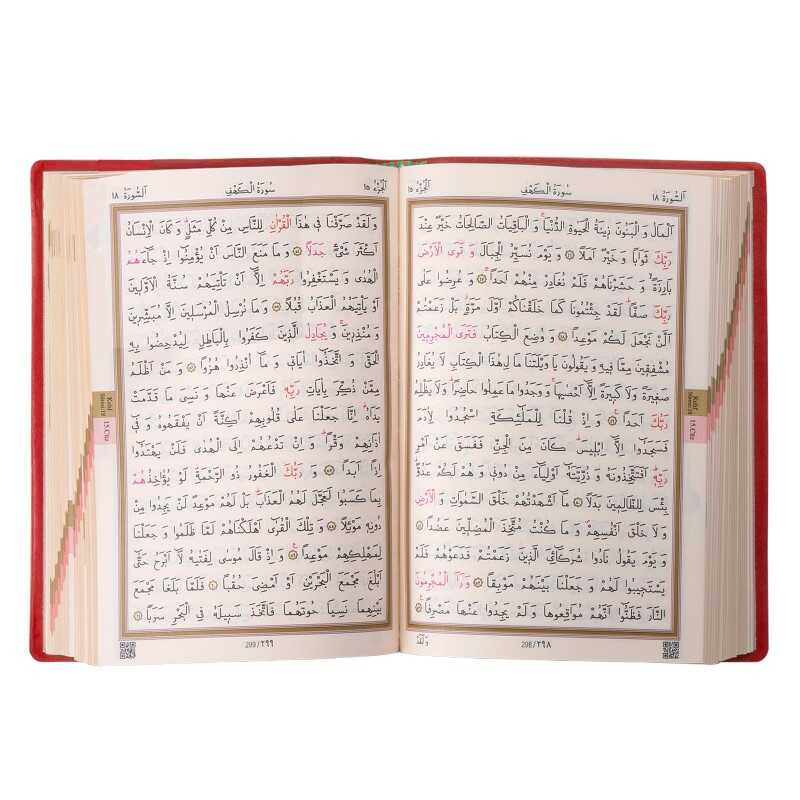 اَلسُّورَةُ ١٨
سُورَةُ الْكَهْفِ
اَلْجُزْءُ ١٥
اَلْمَالُ وَ الْبَنُونَ زِينَةُ الْحَيٰوةِ الدُّنْيَاۚ وَ الْبَاقِيَاتُ الصَّالِحَاتُ خَيْرٌ عِنْدَ
رَبِّكَ ثَوَابًا وَ خَيْرٌ اَمَلًا ﴿٤٦﴾ وَ يَوْمَ نُسَيِّرُ الْجِبَالَ وَ تَرَى الْاَرْضَ
بَارِزَةًۙ وَ حَشَرْنَاهُمْ فَلَمْ نُغَادِرْ مِنْهُمْ اَحَدًاۚ ﴿٤٧﴾ وَ عُرِضُوا عَلٰى
رَبِّكَ صَفًّاۜ لَقَدْ جِئْتُمُونَا كَمَا خَلَقْنَاكُمْ اَوَّلَ مَرَّةٍۘ بَلْ زَعَمْتُمْ
اَلَّنْ نَجْعَلَ لَكُمْ مَوْعِدًا ﴿٤٨﴾ وَ وُضِعَ الْكِتَابُ فَتَرَى الْمُجْرِمِينَ
مُشْفِقِينَ مِمَّا فِيهِ وَ يَقُولُونَ يَا وَيْلَتَنَا مَا لِهٰذَا الْكِتَابِ لَا يُغَادِرُ
صَغِيرَةً وَ لَا كَبِيرَةً اِلَّٓا اَحْصٰيهَاۚ وَ وَجَدُوا مَا عَمِلُوا حَاضِرًاۜ وَ لَا يَظْلِمُ
رَبُّكَ اَحَدًا ﴿٤٩﴾ وَ اِذْ قُلْنَا لِلْمَلٰٓئِكَةِ اسْجُدُوا لِاٰدَمَ
فَسَجَدُٓوا اِلَّٓا اِبْلِيسَۜ كَانَ مِنَ الْجِنِّ فَفَسَقَ عَنْ اَمْرِ
رَبِّهِۜ اَفَتَتَّخِذُونَهُ وَ ذُرِّيَّتَهُٓ اَوْلِيَٓاءَ مِنْ دُونِي وَ هُمْ لَكُمْ عَدُوٌّۜ
بِئْسَ لِلظَّالِمِينَ بَدَلًا ﴿٥٠﴾ مَٓا اَشْهَدْتُهُمْ خَلْقَ السَّمٰوَاتِ وَ الْاَرْضِ
وَ لَا خَلْقَ اَنْفُسِهِمْۖ وَ مَا كُنْتُ مُتَّخِذَ الْمُضِلِّينَ عَضُدًا ﴿٥١﴾
وَ يَوْمَ يَقُولُ نَادُوا شُرَكَٓائِيَ الَّذِينَ زَعَمْتُمْ فَدَعَوْهُمْ فَلَمْ
يَسْتَجِيبُوا لَهُمْ وَ جَعَلْنَا بَيْنَهُمْ مَوْبِقًا ﴿٥٢﴾ وَ رَاَ الْمُجْرِمُونَ
النَّارَ فَظَنُّٓوا اَنَّهُمْ مُوَاقِعُوهَا وَ لَمْ يَجِدُوا عَنْهَا مَصْرِفًا۟ ﴿٥٣﴾
وَ لَقَدْ
298 / ٢٩٨
Kehf
Sûresi:18
15.Cüz
اَلسُّورَةُ ١٨
سُورَةُ الْكَهْفِ
اَلْجُزْءُ ١٥
وَ لَقَدْ صَرَّفْنَا فِي هٰذَا الْقُرْاٰنِ لِلنَّاسِ مِنْ كُلِّ مَثَلٍۜ وَ كَانَ الْاِنْسَانُ
اَكْثَرَ شَيْءٍ جَدَلًا ﴿٥٤﴾ وَ مَا مَنَعَ النَّاسَ اَنْ يُؤْمِنُٓوا اِذْ جَٓاءَهُمُ
الْهُدٰى وَ يَسْتَغْفِرُوا رَبَّهُمْ اِلَّٓا اَنْ تَأْتِيَهُمْ سُنَّةُ الْاَوَّلِينَ
اَوْ يَأْتِيَهُمُ الْعَذَابُ قُبُلًا ﴿٥٥﴾ وَ مَا نُرْسِلُ الْمُرْسَلِينَ اِلَّا مُبَشِّرِينَ
وَ مُنْذِرِينَۚ وَ يُجَادِلُ الَّذِينَ كَفَرُوا بِالْبَاطِلِ لِيُدْحِضُوا بِهِ
الْحَقَّ وَ اتَّخَذُٓوا اٰيَاتِي وَ مَٓا اُنْذِرُوا هُزُوًا ﴿٥٦﴾ وَ مَنْ اَظْلَمُ
مِمَّنْ ذُكِّرَ بِاٰيَاتِ رَبِّهِ فَاَعْرَضَ عَنْهَا وَ نَسِيَ مَا قَدَّمَتْ
يَدَاهُۜ اِنَّا جَعَلْنَا عَلٰى قُلُوبِهِمْ اَكِنَّةً اَنْ يَفْقَهُوهُ وَ فِٓي
اٰذَانِهِمْ وَقْرًاۜ وَ اِنْ تَدْعُهُمْ اِلَى الْهُدٰى فَلَنْ يَهْتَدُٓوا
اِذًا اَبَدًا ﴿٥٧﴾ وَ رَبُّكَ الْغَفُورُ ذُو الرَّحْمَةِۜ لَوْ يُؤَاخِذُهُمْ
بِمَا كَسَبُوا لَعَجَّلَ لَهُمُ الْعَذَابَۜ بَلْ لَهُمْ مَوْعِدٌ لَنْ يَجِدُوا مِنْ
دُونِهِ مَوْئِلًا ﴿٥٨﴾ وَ تِلْكَ الْقُرٰٓى اَهْلَكْنَاهُمْ لَمَّا ظَلَمُوا وَ جَعَلْنَا
لِمَهْلِكِهِمْ مَوْعِدًا۟ ﴿٥٩﴾ وَ اِذْ قَالَ مُوسٰى لِفَتٰيهُ لَٓا اَبْرَحُ حَتّٰٓى
اَبْلُغَ مَجْمَعَ الْبَحْرَيْنِ اَوْ اَمْضِيَ حُقُبًا ﴿٦٠﴾ فَلَمَّا بَلَغَا مَجْمَعَ
بَيْنِهِمَا نَسِيَا حُوتَهُمَا فَاتَّخَذَ سَبِيلَهُ فِي الْبَحْرِ سَرَبًا ﴿٦١﴾
299 / ٢٩٩
Kehf
Sûresi:18
15.Cüz